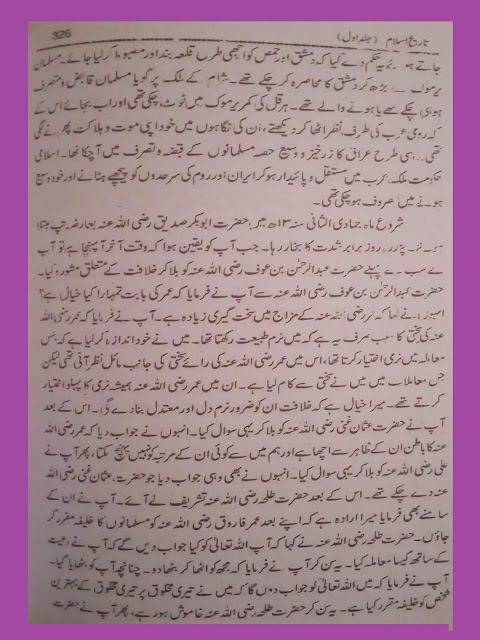 تاریخ اسلام (جلد اول) 326
جاتے ہوئے یہ حکم دے گیا کہ دمشق اور حمص کو اچھی طرح قلعہ بند اور مضبوط کر لیا جائے۔ مسلمان
یرموک سے بڑھ کر دمشق کا محاصرہ کر چکے تھے۔ شام کے ملک پر گویا مسلمان قابض و متصرف
ہو ہی چکے تھے یا ہونے والے تھے۔ ہرقل کی کمر یرموک میں ٹوٹ چکی تھی اور اب بجائے اس کے
کہ رومی عرب کی طرف نظر اٹھا کر دیکھتے، ان کی نگاہوں میں خود اپنی موت و ہلاکت پھرنے لگی
تھی۔ اسی طرح عراق کا زرخیز و وسیع حصہ مسلمانوں کے قبضہ و تصرف میں آ چکا تھا۔ اسلامی
حکومت ملک عرب میں مستقل و پائیدار ہو کر ایران اور روم کی سرحدوں کو پیچھے ہٹانے اور خود وسیع
ہونے میں مصروف ہو چکی تھی۔
شروع ماہ جمادی الثانی سنہ ۱۳ھ میں حضرت ابوبکر صدیق رضی اللہ عنہ بعارضہ تپ مبتلا
ہوئے۔ پندرہ روز برابر شدت کا بخار رہا۔ جب آپ کو یقین ہوا کہ وقت آخر آ پہنچا ہے تو آپ
نے سب سے پہلے حضرت عبدالرحمٰن بن عوف رضی اللہ عنہ کو بلا کر خلافت کے متعلق مشورہ کیا۔
حضرت عبدالرحمٰن بن عوف رضی اللہ عنہ سے آپ نے فرمایا کہ عمر کی بابت تمہارا کیا خیال ہے؟
انہوں نے کہا کہ عمر رضی اللہ عنہ کے مزاج میں سخت گیری زیادہ ہے۔ آپ نے فرمایا کہ عمر رضی اللہ
عنہ کی سختی کا سبب صرف یہ ہے کہ میں نرم طبیعت رکھتا تھا۔ میں نے خود اندازہ کر لیا ہے کہ جس
معاملہ میں نرمی اختیار کرتا تھا، اس میں عمر رضی اللہ عنہ کی رائے سختی کی جانب مائل نظر آتی تھی لیکن
جن معاملات میں میں نے سختی سے کام لیا ہے۔ ان میں عمر رضی اللہ عنہ ہمیشہ نرمی کا پہلو اختیار
کرتے تھے۔ میرا خیال ہے کہ خلافت ان کو ضرور نرم دل اور معتدل بنا دے گی۔ اس کے بعد
آپ نے حضرت عثمان غنی رضی اللہ عنہ کو بلا کر یہی سوال کیا۔ انہوں نے جواب دیا کہ عمر رضی اللہ
عنہ کا باطن ان کے ظاہر سے اچھا ہے اور ہم میں سے کوئی ان کے مرتبہ کو نہیں پہنچ سکتا، پھر آپ نے
علی رضی اللہ عنہ کو بلا کر یہی سوال کیا۔ انہوں نے بھی وہی جواب دیا جو حضرت عثمان غنی رضی اللہ
عنہ دے چکے تھے۔ اس کے بعد حضرت طلحہ رضی اللہ عنہ تشریف لے آئے۔ آپ نے ان کے
سامنے بھی فرمایا میرا ارادہ ہے کہ اپنے بعد عمر فاروق رضی اللہ عنہ کو مسلمانوں کا خلیفہ مقرر کر
جاؤں۔ حضرت طلحہ رضی اللہ عنہ نے کہا کہ آپ اللہ تعالیٰ کو کیا جواب دیں گے کہ آپ نے رعیت
کے ساتھ کیسا معاملہ کیا۔ یہ سن کر آپ نے فرمایا کہ مجھ کو اٹھا کر بٹھا دو۔ چنانچہ آپ کو بٹھایا گیا۔
آپ نے فرمایا کہ میں اللہ تعالیٰ کو جواب دوں گا کہ میں نے تیری مخلوق پر تیری مخلوق کے بہترین
شخص کو خلیفہ مقرر کیا ہے۔ یہ سن کر حضرت طلحہ رضی اللہ عنہ خاموش ہو رہے، پھر آپ نے حضرت